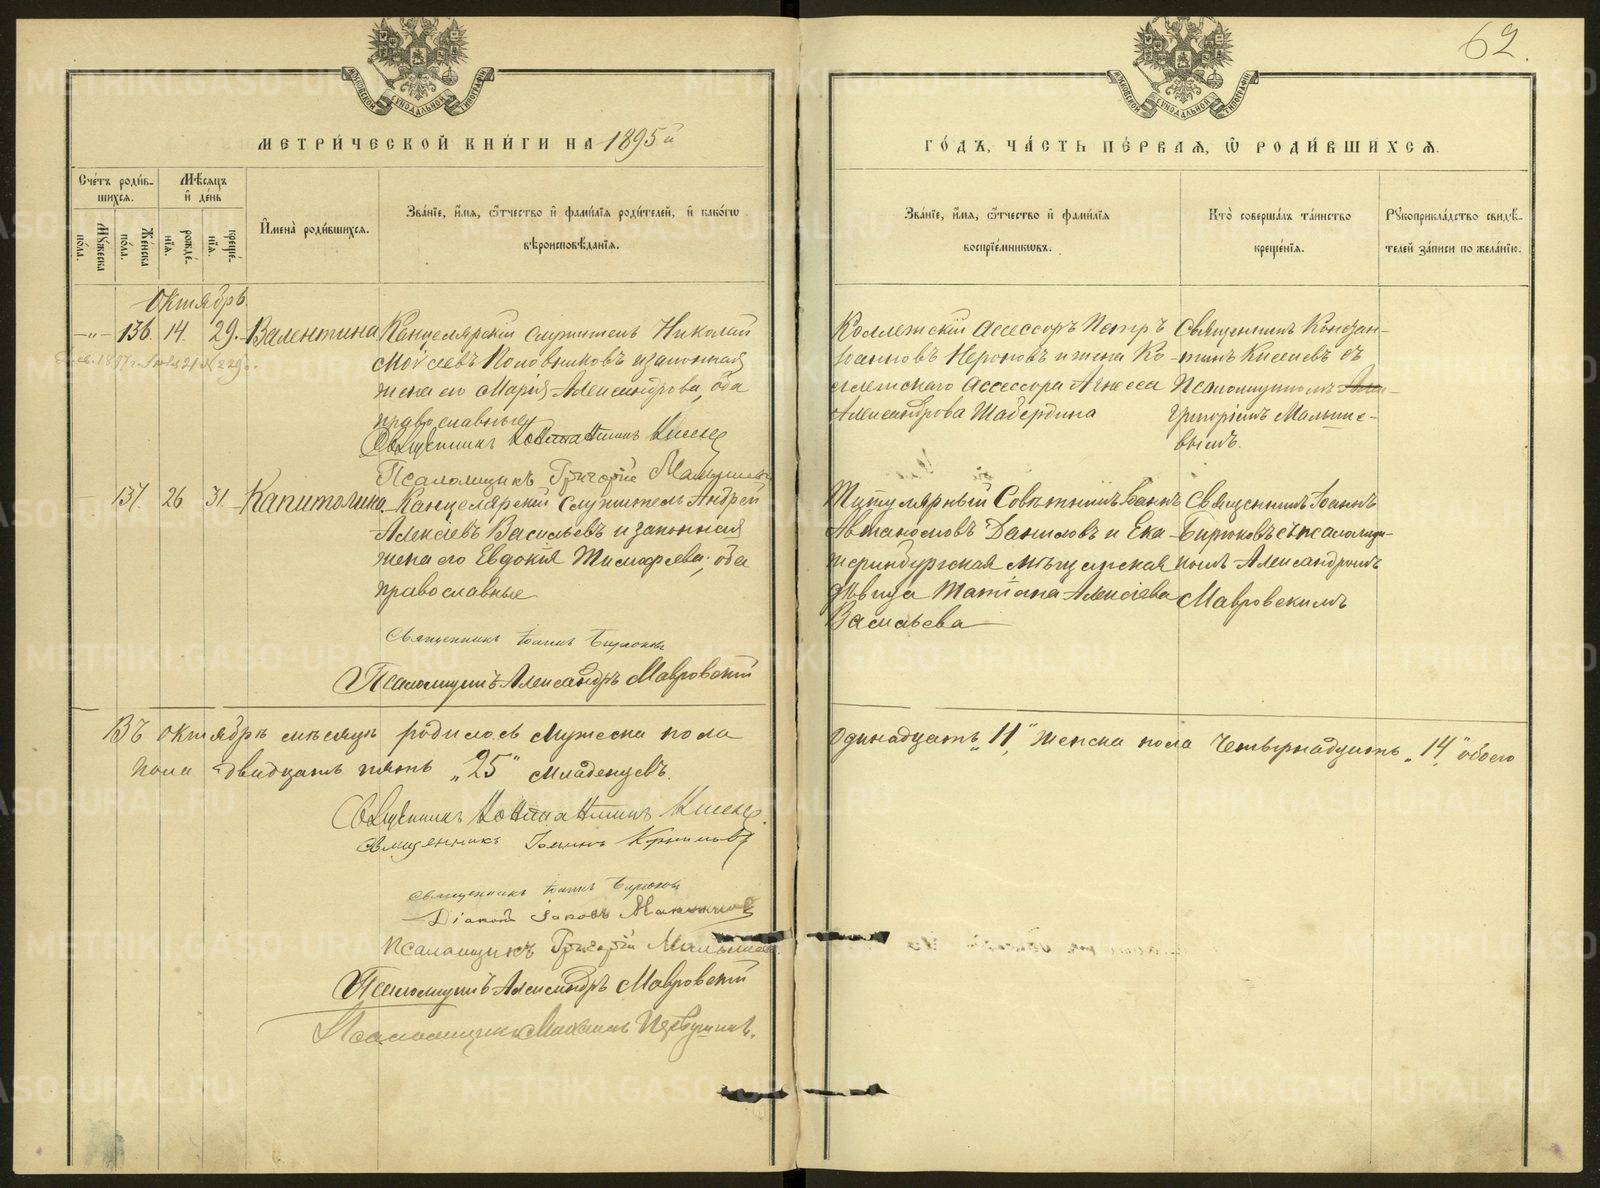 62.
МЕТРИ́ЧЕСКОЙ КНИ́ГИ НА 1895й
ГО́ДЪ, ЧА́СТЬ ПЕ́РВАЯ, Ѡ РОДИ́ВШИХСЯ.
Сче́тъ роди́в-
шихся.
Мѣ́сяцъ
и҆ де́нь
И҆мена̀ роди́вшихся.
Зва́нїе, и҆́мя, ѻ҆́тчество и҆ фами́лїя роди́телей, и҆ како́гѡ
вѣроисповѣ́данїя.
Зва́нїе, и҆́мя, ѻ҆́тчество и҆ фами́лїя
воспрїе́мниковъ.
Кто̀ соверша́лъ та́инство
креще́нїя.
Рꙋкоприкла́дство свидѣ́-
телей за́писи по жела́нїю.
Мꙋ́жеска по́ла.
Же́нска по́ла.
рожде́-нїя.
креще́-нїя.
Октябрь.
—"— 136. 14. 29. Валентина
Канцелярскій служитель Николай
Моѵсеевъ Половниковъ и законная
жена его Марія Александрова, оба
православные
Священникъ Константинъ Киселев
Псаломщикъ Григорій Малышевъ
Коллежскій Ассессоръ Петръ
Іоанновъ Нероновъ и жена Ко-
ллежскаго Ассессора Агнесса
Александрова Шабердина
Священникъ Констан-
тинъ Киселевъ съ
Псаломщикомъ
Григоріемъ Малыше-
вымъ.
137. 26 31 Капитолина
Канцелярскій Служитель Андрей
Алексѣевъ Васильевъ и законная
жена его Евдокія Тимофеева; оба
православные
Священникъ Іоаннъ Бирюковъ
Псаломщикъ Александръ Мавровскій
Титулярный Совѣтникъ Іоаннъ
Автаномовъ Даниловъ и Ека-
теринбургская мѣщанская
дѣвица Татіана Алексіева
Васильева
Священникъ Іоаннъ
Бирюковъ съ псаломщи-
комъ Александромъ
Мавровскимъ
Въ октябрѣ мѣсяцѣ родилось мужеска пола одинадцать „11„ женска пола четырнадцать „14„ обоего
пола двадцать пять „25" младенцевъ.
Священникъ Константинъ Киселев
Священникъ Іоаннъ
Священникъ Іоаннъ Бирюковъ
Діаконъ Іаковъ
Псаломщикъ Григорій Малышевъ
Псаломщикъ Александръ Мавровскій
Псаломщикъ